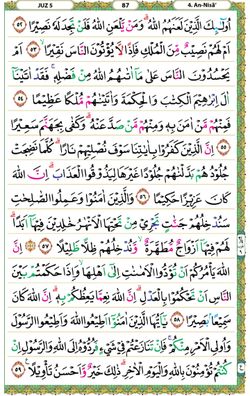 JUZ 5 87 4. An-Nisā'
أُولَٰئِكَ الَّذِينَ لَعَنَهُمُ اللَّهُ ۖ وَمَنْ يَلْعَنِ اللَّهُ فَلَنْ تَجِدَ لَهُ نَصِيرًا ۝٥٢
أَمْ لَهُمْ نَصِيبٌ مِنَ الْمُلْكِ فَإِذًا لَا يُؤْتُونَ النَّاسَ نَقِيرًا ۝٥٣ أَمْ
يَحْسُدُونَ النَّاسَ عَلَىٰ مَا آتَاهُمُ اللَّهُ مِنْ فَضْلِهِ ۖ فَقَدْ آتَيْنَا
آلَ إِبْرَاهِيمَ الْكِتَابَ وَالْحِكْمَةَ وَآتَيْنَاهُمْ مُلْكًا عَظِيمًا ۝٥٤
فَمِنْهُمْ مَنْ آمَنَ بِهِ وَمِنْهُمْ مَنْ صَدَّ عَنْهُ ۚ وَكَفَىٰ بِجَهَنَّمَ سَعِيرًا
۝٥٥ إِنَّ الَّذِينَ كَفَرُوا بِآيَاتِنَا سَوْفَ نُصْلِيهِمْ نَارًا ۗ كُلَّمَا نَضِجَتْ
جُلُودُهُمْ بَدَّلْنَاهُمْ جُلُودًا غَيْرَهَا لِيَذُوقُوا الْعَذَابَ ۗ إِنَّ اللَّهَ
كَانَ عَزِيزًا حَكِيمًا ۝٥٦ وَالَّذِينَ آمَنُوا وَعَمِلُوا الصَّالِحَاتِ
سَنُدْخِلُهُمْ جَنَّاتٍ تَجْرِي مِنْ تَحْتِهَا الْأَنْهَارُ خَالِدِينَ فِيهَا أَبَدًا ۗ
لَهُمْ فِيهَا أَزْوَاجٌ مُطَهَّرَةٌ ۙ وَنُدْخِلُهُمْ ظِلًّا ظَلِيلًا ۝٥٧ إِنَّ
اللَّهَ يَأْمُرُكُمْ أَنْ تُؤَدُّوا الْأَمَانَاتِ إِلَىٰ أَهْلِهَا وَإِذَا حَكَمْتُمْ بَيْنَ
النَّاسِ أَنْ تَحْكُمُوا بِالْعَدْلِ ۗ إِنَّ اللَّهَ نِعِمَّا يَعِظُكُمْ بِهِ ۗ إِنَّ اللَّهَ كَانَ
سَمِيعًا بَصِيرًا ۝٥٨ يَا أَيُّهَا الَّذِينَ آمَنُوا أَطِيعُوا اللَّهَ وَأَطِيعُوا الرَّسُولَ
وَأُولِي الْأَمْرِ مِنْكُمْ ۚ فَإِنْ تَنَازَعْتُمْ فِي شَيْءٍ فَرُدُّوهُ إِلَى اللَّهِ وَالرَّسُولِ إِنْ
كُنْتُمْ تُؤْمِنُونَ بِاللَّهِ وَالْيَوْمِ الْآخِرِ ۗ ذَٰلِكَ خَيْرٌ وَأَحْسَنُ تَأْوِيلًا ۝٥٩